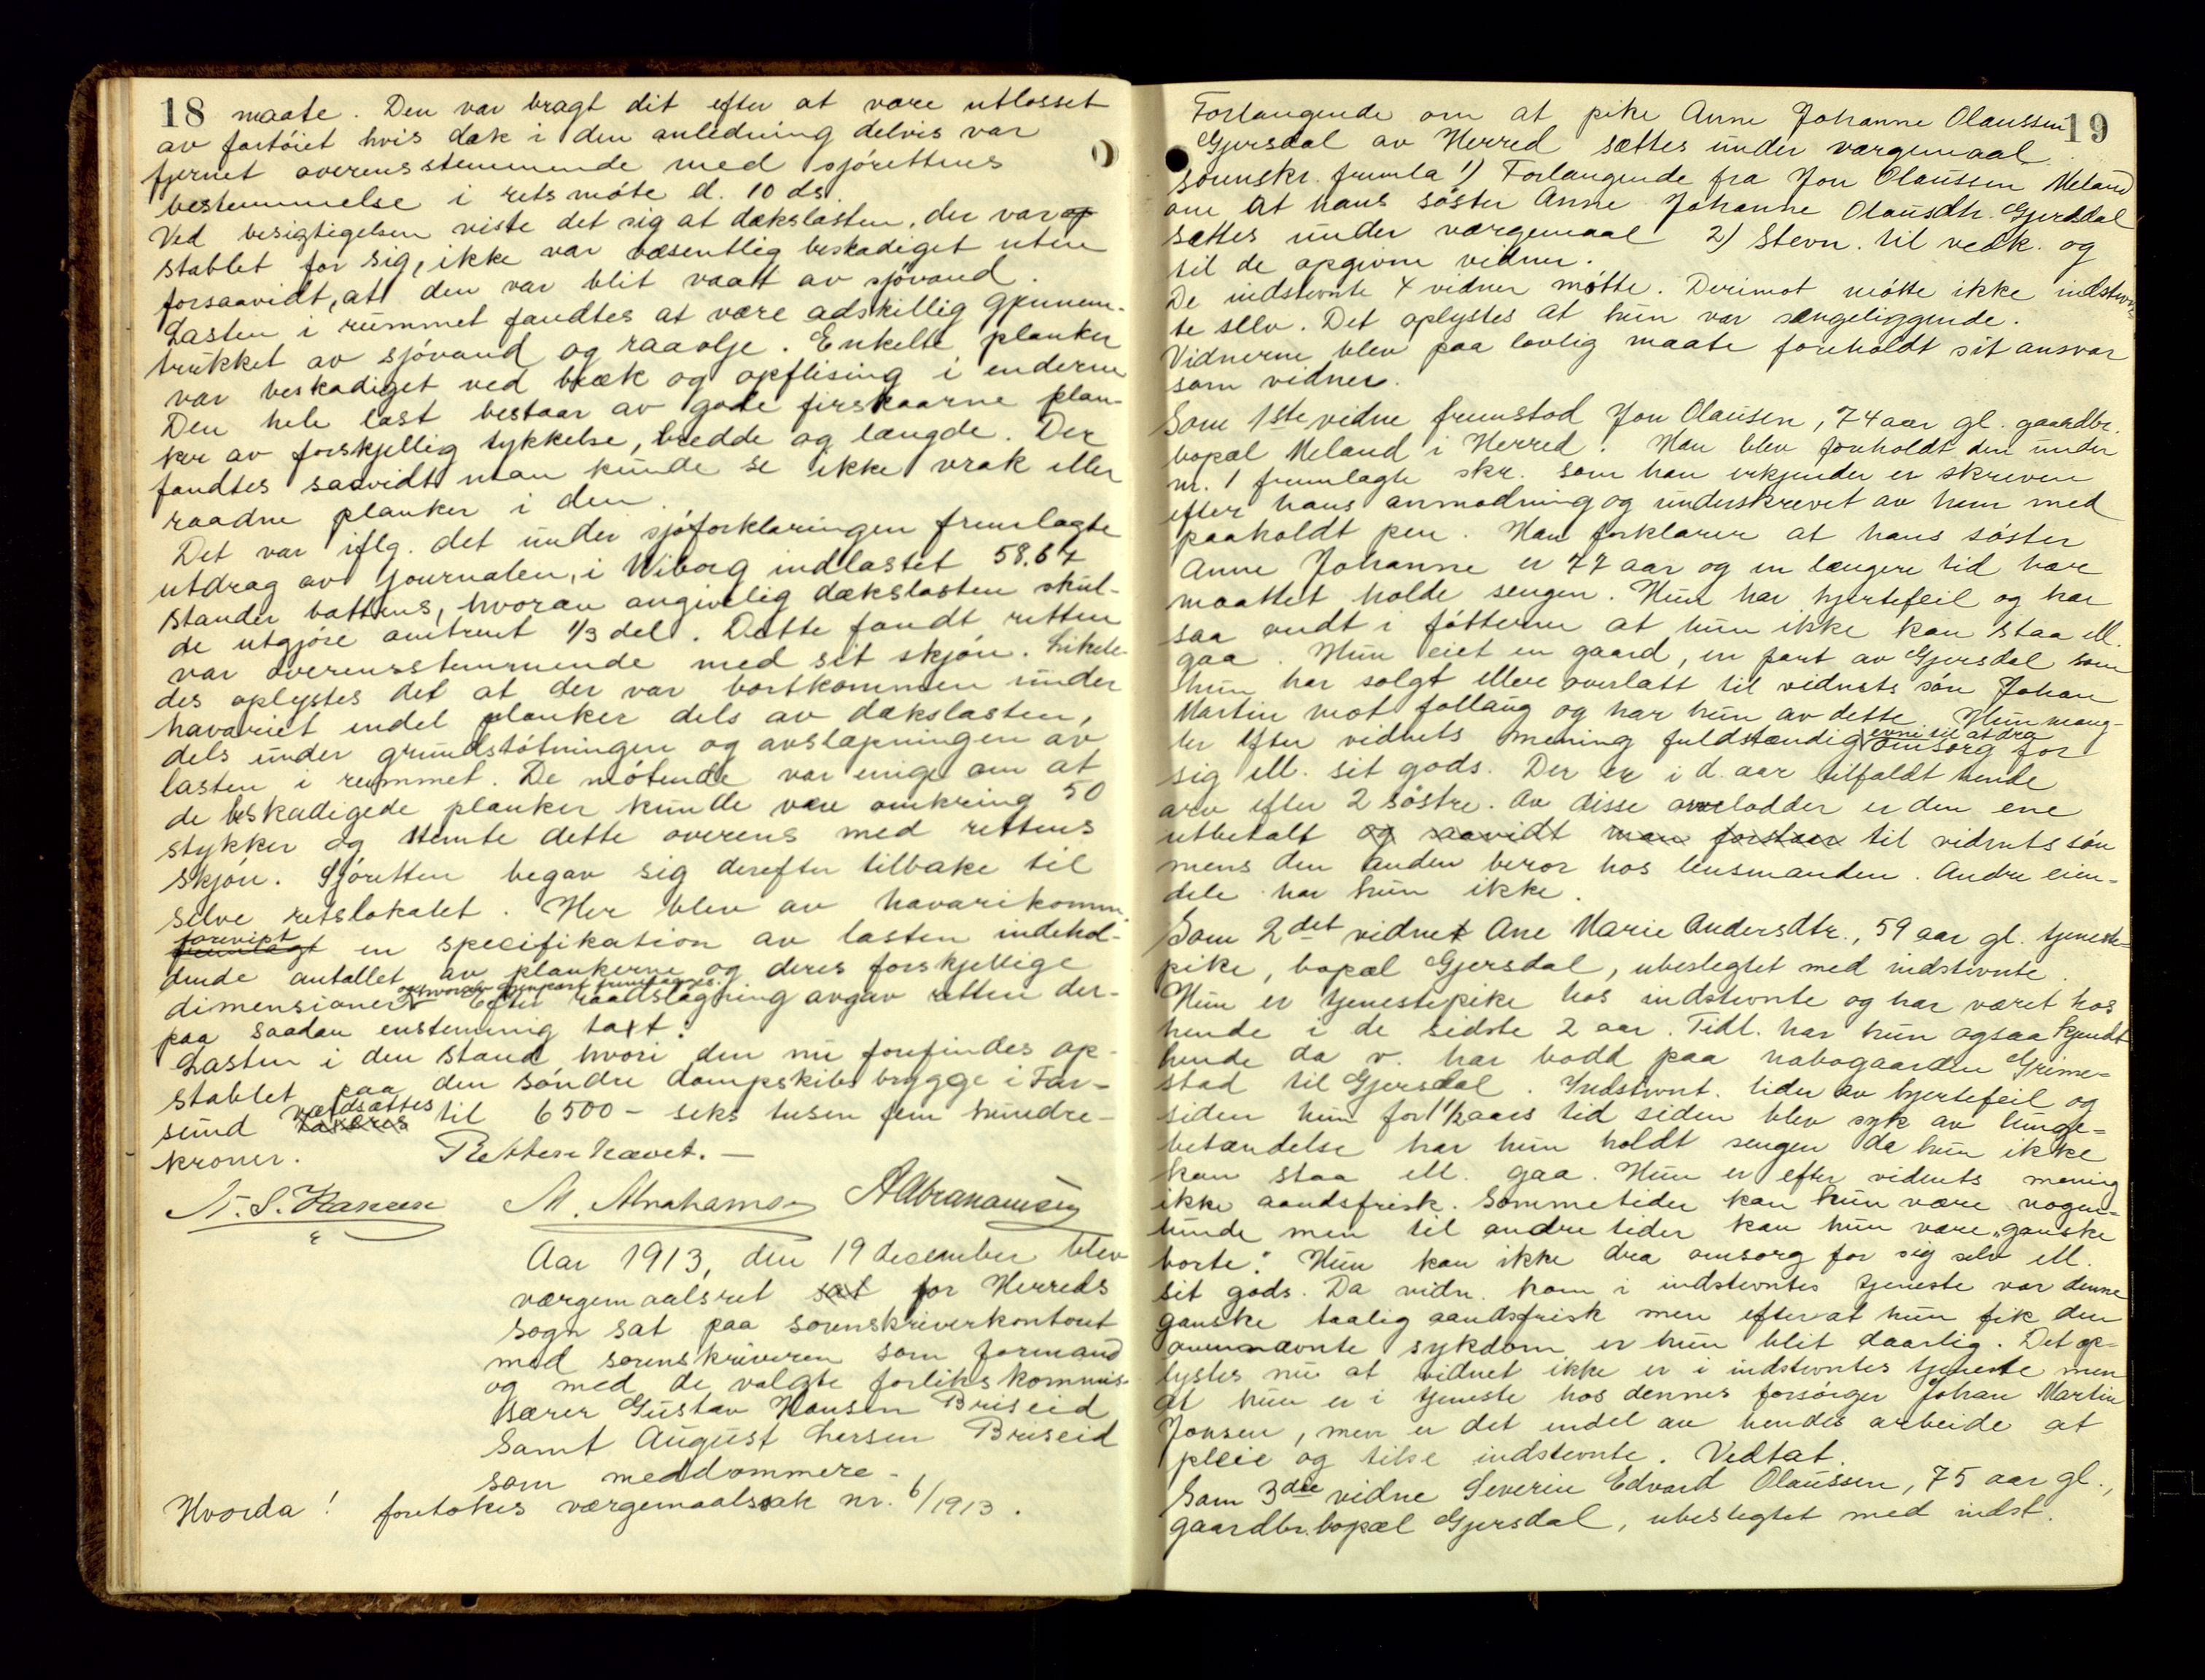 18 maate. Den var bragt dit efter at være utlosset
av fartöiet hvis dæk i den anledning delvis var
fjernet overensstemmende med sjörettens
bestemmelse i rets möte d. 10 ds.
Ved besigtigelsen viste det sig at dækslasten, der var op
stablet for sig, ikke var væsentlig beskadiget uten
forsaavidt, at den var blit vaatt av sjövand.
Lasten i rummet fandtes at være adskillig gjennem-
trukket av sjövand og raaolje. Enkelte planker
var beskadiget ved bræk og opflising i enderne
Den hele last bestaar av gode firskaarne plan-
ker av forskjellig tykkelse, bredde og længde. Der
fandtes saavidt man kunde se ikke vrak eller
raadne planker i den.
Det var iflg. det under sjöforklaringen fremlagte
utdrag av journalen, i Wiborg indlastet 58.67
Stander battens, hvorav angivelig dækslasten skul-
de utgjöre omtrent 1/3 del. Dette fandt retten
var overensstemmende med sit skjön. Likele-
des oplystes det at der var bortkommen under
havariet endel planker dels av dækslasten,
dels under grundstötningen og avslæpningen av
lasten i rummet. De mötende var enige om at
de beskadigede planker kunde være omkring 50
stykker og stemte dette overens med rettens
skjön. Sjöretten begav sig derefter tilbake til
selve retslokalet. Her blev av havarikomm.
forevist
fremlagt en specifikation av lasten indehol-
dende antallet av plankerne og deres forskjellige
dimensioner Efter raadslagning avgav retten der-
paa saadan enstemmig taxt:
Lasten i den stand hvori den nu forefindes op-
stablet paa den söndre dampskibs brygge i Far-
sund værdsættes til 6500 - seks tusen fem hundre-
kroner. Retten hævet. -
N. S. Hansen M. Abrahamsen A Abrahamsen
Aar 1913, den 19 december blev
værgemaalsret sat for Herreds
sogn sat paa sorenskriverkontoret
med sorenskriveren som formand
og med de valgte forlikskommis-
særer Gustav Hansen Briseid
samt August Larsen Briseid
som meddommere -
Hvorda! foretokes værgemaalssak nr. 6/1913.
19
Forlangende om at pike Anne Johanne Olaussen
Gjersdal av Herred sættes under værgemaal.
Sorenskr. fremla 1) Forlangende fra Jon Olaussen Meland
om at hans söster Anne Johanne Olausdtr. Gjersdal
sættes under værgemaal 2) Stevn. til vedk. og
til de opgivne vidner.
De indstevnte 4 vidner mötte. Derimot mötte ikke indstevn
te selv. Det oplystes at hun var sengeliggende.
Vidnerne blev paa lovlig maate foreholdt sit ansvar
som vidner.
Som 1ste vidne fremstod Jon Olausen, 74 aar gl. gaardbr.
bopæl Meland i Herred. Han blev foreholdt den under
nr. 1 fremlagte skr. som han erkjender er skreven
efter hans anmodning og underskrevet av ham med
paaholdt pen. Han forklarer at hans söster
Anne Johanne er 77 aar og en længere tid har
maattet holde sengen. Hun har hjertefeil og har
saa ondt i fötterne at hun ikke kan staa ell.
gaa. Hun eiet en gaard, en part av Gjersdal som
hun har solgt eller overlatt til vidnets sön Johan
Martin mot föllaug og har hun av dette. Hun mang-
evne til at dra
ler efter vidnets mening fuldstændig omsorg for
sig ell. sit gods. Der er i d. aar tilfaldt hende
arv efter 2 söstre. Av disse arvelodder er den ene
utbetalt og saavidt man forstaar til vidnets sön
mens den anden beror hos lensmanden. Andre eien-
dele har hun ikke.
Som 2det vidnet Ane Marie Andersdtr., 59 aar gl. tjeneste-
pike, bopæl Gjersdal, ubeslegtet med indstevnte.
Hun er tjenestepike hos indstevnte og har været hos
hende i de sidste 2 aar. Tidl. har hun ogsaa kjendt
hende da v. har bodd paa nabogaarden Grime-
stad til Gjersdal. Indstevnt. lider av hjertefeil og
siden hun for 1 1/2 aars tid siden blev syk av lunge-
betændelse har hun holdt sengen da hun ikke
kan staa ell. gaa. Hun er efter vidnets mening
ikke aandsfrisk. Sommetider kan hun være nogen-
lunde men til andre tider kan hun være "ganske
borte". Hun kan ikke dra omsorg for sig selv ell.
sit gods. Da vidn. kom i indstevntes tjeneste var denne
ganske taalig aandsfrisk men efter at hun fik den
ovennævnte sykdom er hun blit daarlig. Det op-
lystes nu at vidnet ikke er i indstevntes tjeneste men
at hun er i tjeneste hos dennes forsörger Johan Martin
Jonsen, men er det endel av hendes arbeide at
pleie og tilse indstevnte. Vedtat.
Som 3die vidne Severin Edvard Olaussen, 75 aar gl.,
gaardbr. bopæl Gjersdal, ubeslegtet med indst.